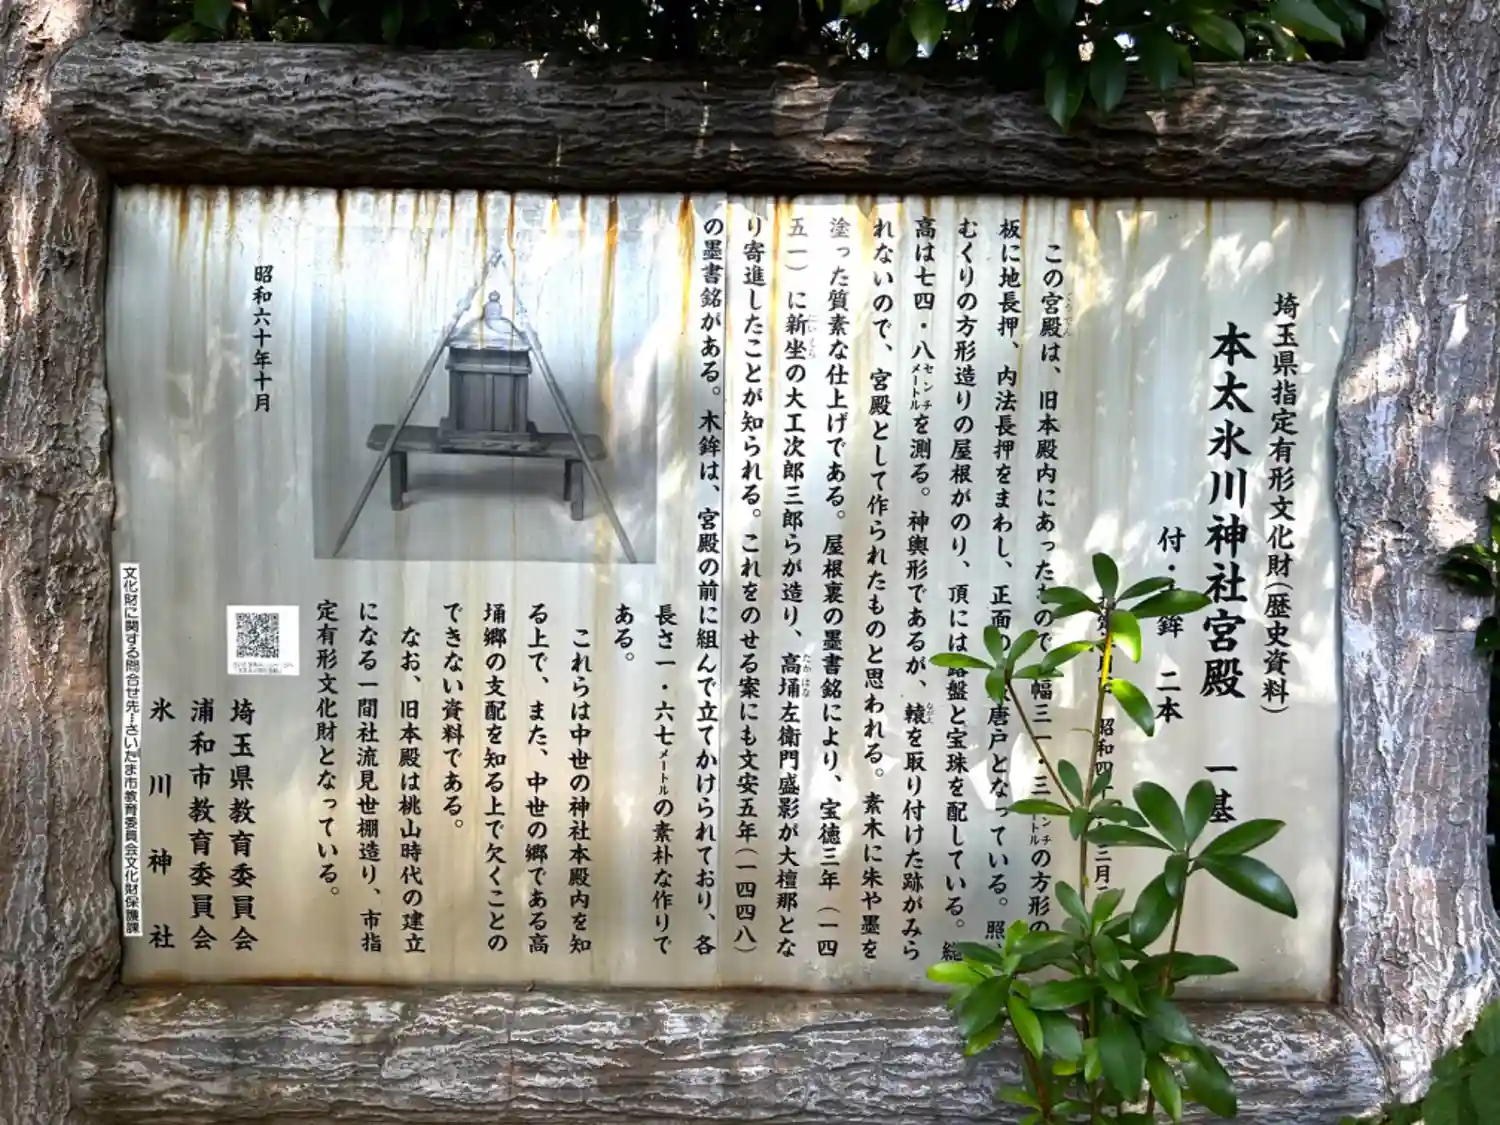 埼玉県指定有形文化財(歴史資料)
本太氷川神社宮殿 一基
付・ 鉾 二本
昭和四 三月
この宮殿は、旧本殿内にあったもので 幅三一・三センチメートルの方形の
板に地長押、内法長押をまわし、正面の 唐戸となっている。照
むくりの方形造りの屋根がのり、頂には露盤と宝珠を配している。総
高は七四・八センチメートルを測る。神輿形であるが、轅を取り付けた跡がみら
れないので、宮殿として作られたものと思われる。素木に朱や墨を
塗った質素な仕上げである。屋根裏の墨書銘により、宝徳三年(一四
五一)に新坐の大工次郎三郎らが造り、高埇左衛門盛影が大檀那とな
り寄進したことが知られる。これをのせる案にも文安五年(一四四八)
の墨書銘がある。木鉾は、宮殿の前に組んで立てかけられており、各
長さ一・六七メートルの素朴な作りで
ある。
これらは中世の神社本殿内を知
る上で、また、中世の郷である高
埇郷の支配を知る上で欠くことの
できない資料である。
なお、旧本殿は桃山時代の建立
になる一間社流見世棚造り、市指
定有形文化財となっている。
昭和六十年十月
埼玉県教育委員会
浦和市教育委員会
氷川神社
文化財に関する問合せ先…さいたま市教育委員会文化財保護課